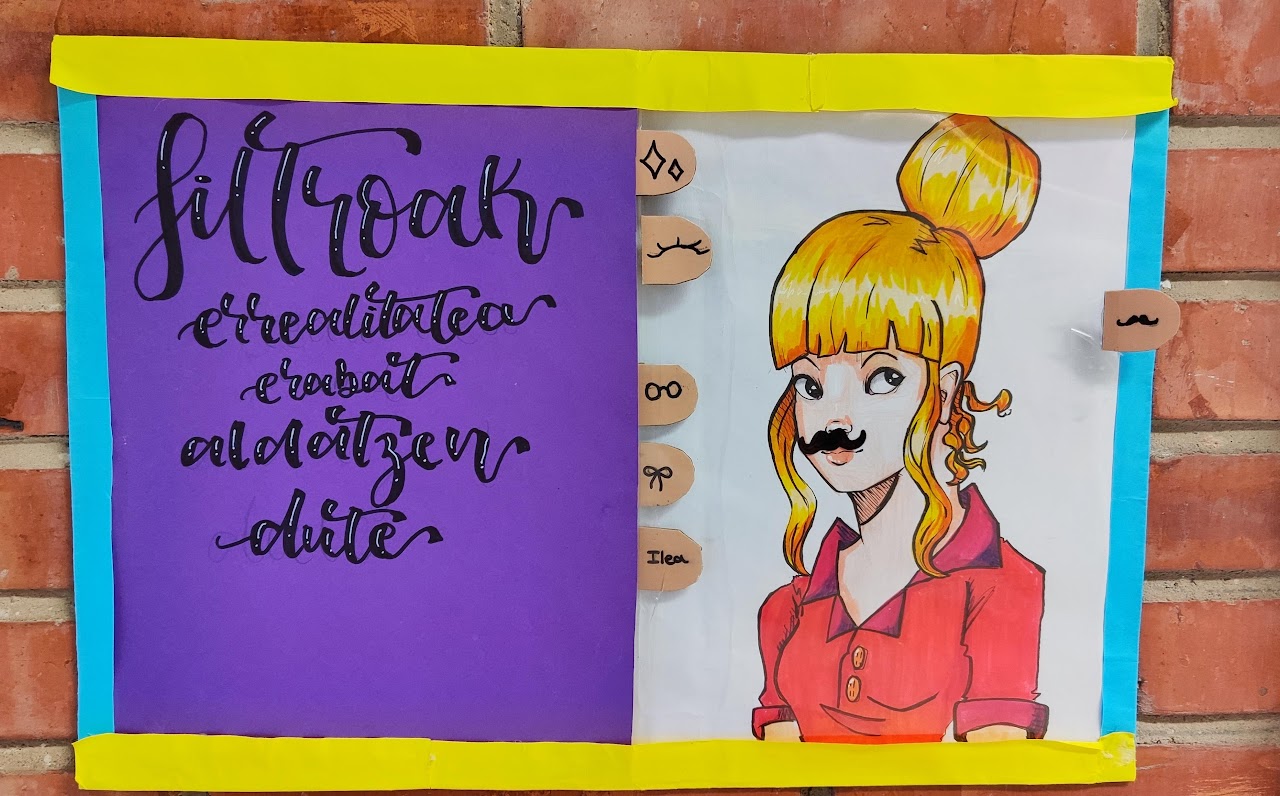 filtroak
errealitatea
erabat
aldatzen
dute
Ilea